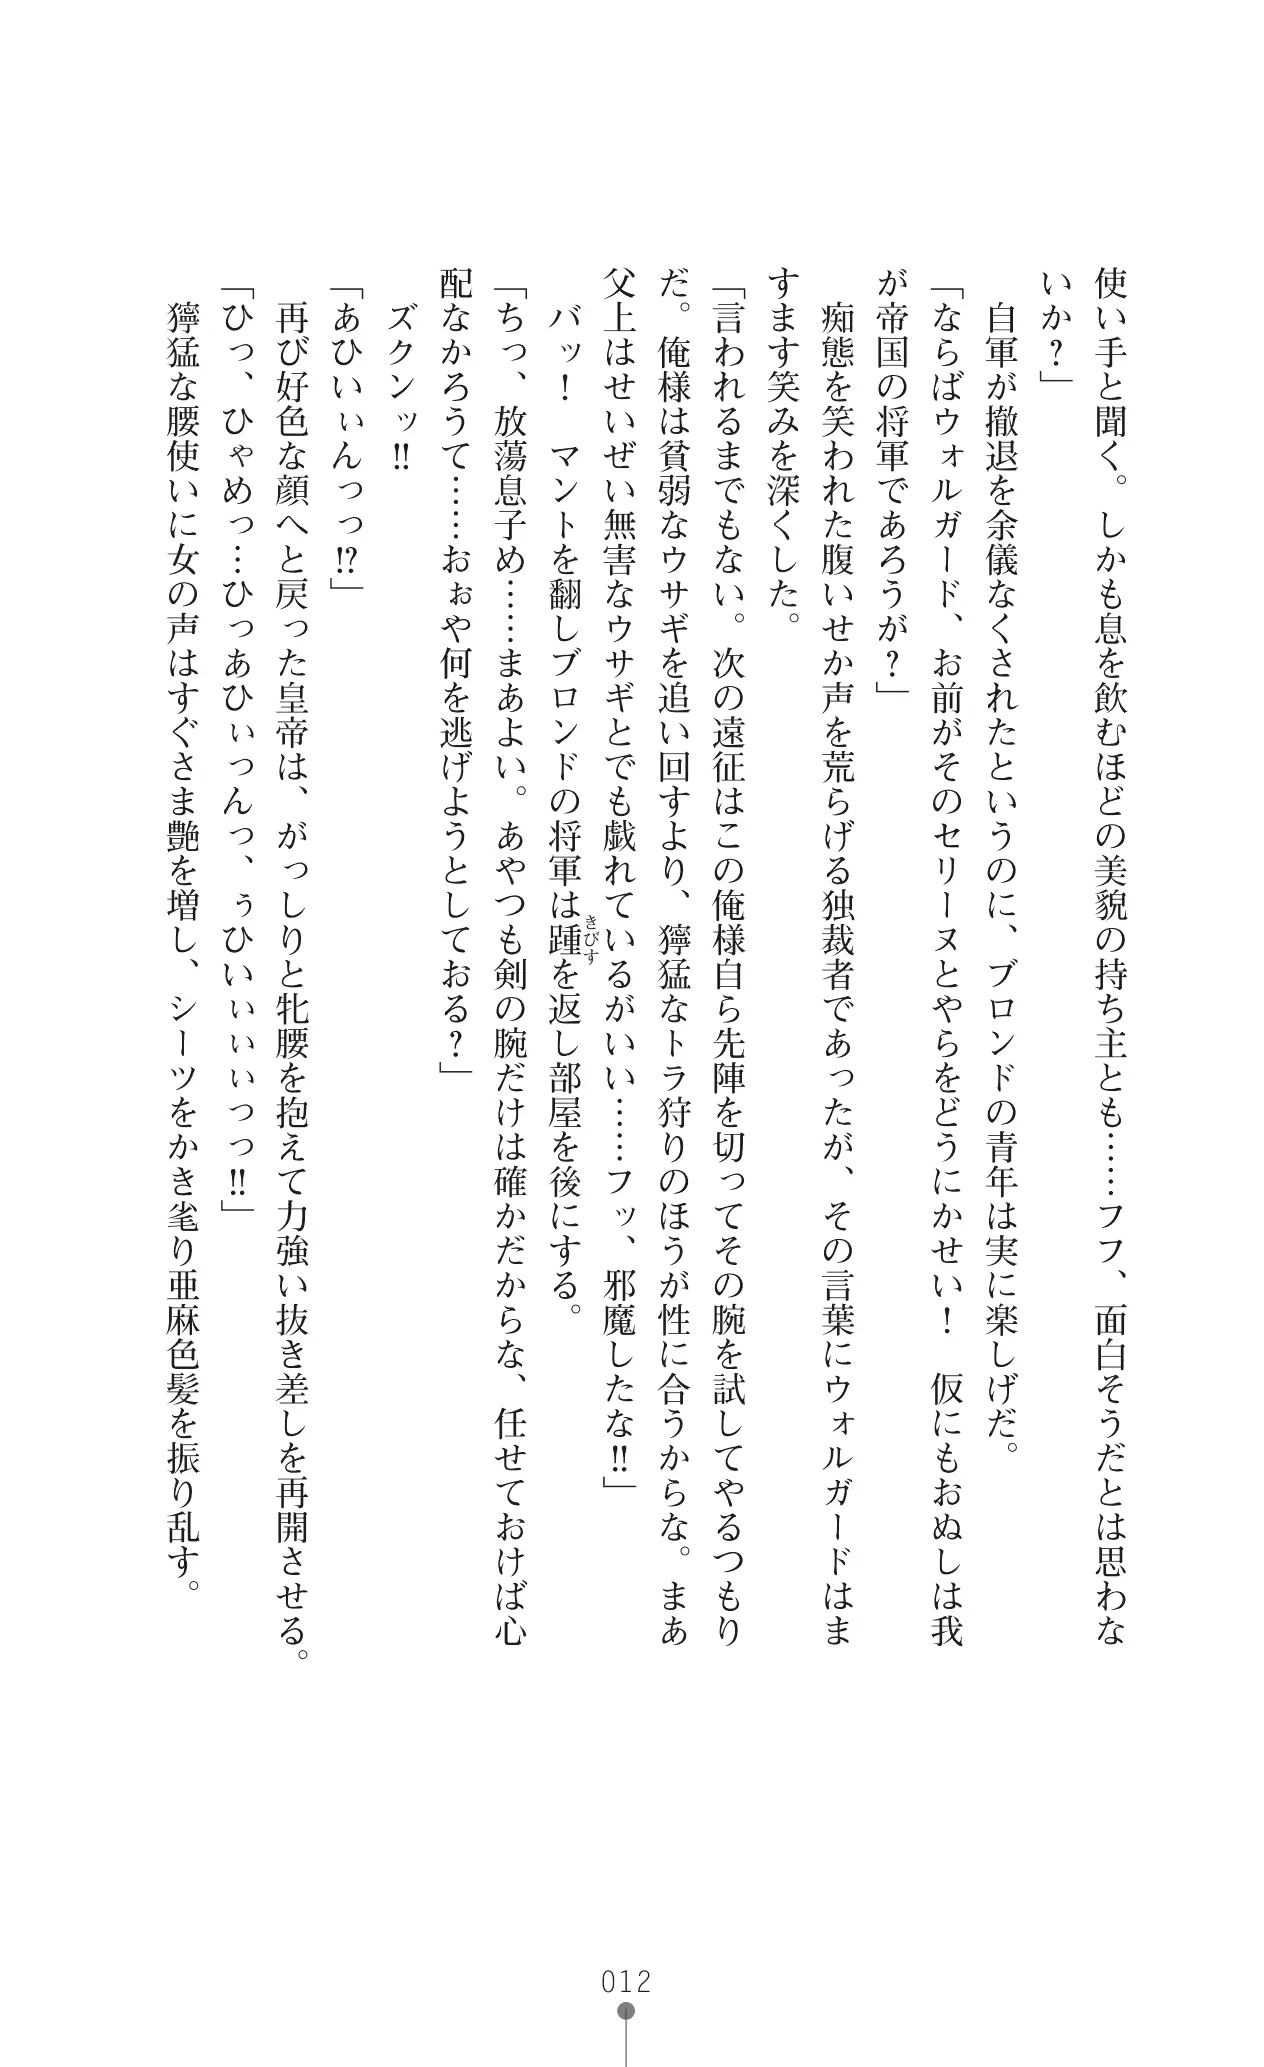 使い手と聞く。しかも息を飲むほどの美貌の持ち主とも……フフ、面白そうだとは思わな
いか？」
　自軍が撤退を余儀なくされたというのに、ブロンドの青年は実に楽しげだ。
「ならばウォルガード、お前がそのセリーヌとやらをどうにかせい！　仮にもおぬしは我
が帝国の将軍であろうが？」
　痴態を笑われた腹いせか声を荒らげる独裁者であったが、その言葉にウォルガードはま
すます笑みを深くした。
「言われるまでもない。次の遠征はこの俺様自ら先陣を切ってその腕を試してやるつもり
だ。俺様は貧弱なウサギを追い回すより、獰猛なトラ狩りのほうが性に合うからな。まあ
父上はせいぜい無害なウサギとでも戯れているがいい……フッ、邪魔したな‼」
　バッ！　マントを翻しブロンドの将軍は踵を返し部屋を後にする。
きびす
「ちっ、放蕩息子め……まあよい。あやつも剣の腕だけは確かだからな、任せておけば心
配なかろうて……おぉや何を逃げようとしておる？」
　ズクンッ‼
「あひいぃんっっ⁉」
　再び好色な顔へと戻った皇帝は、がっしりと牝腰を抱えて力強い抜き差しを再開させる。
「ひっ、ひゃめっ…ひっあひぃっんっ、ぅひいぃぃぃっっ‼」
　獰猛な腰使いに女の声はすぐさま艶を増し、シーツをかき毟り亜麻色髪を振り乱す。
012